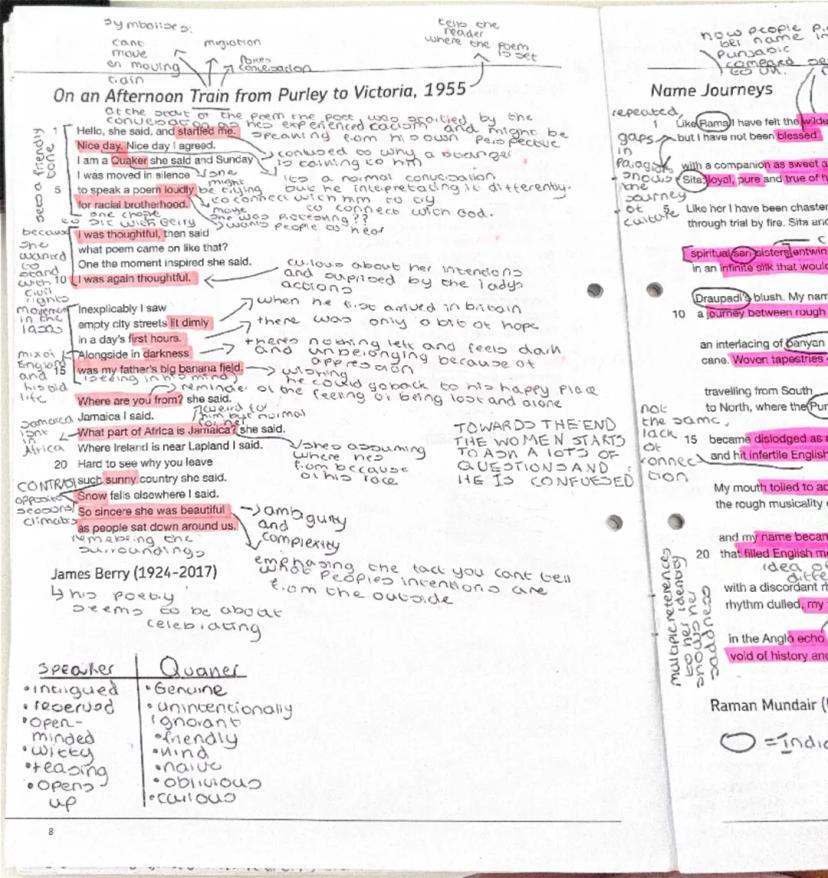 symbolises:
cant
move
on moving
train
migration
forces
conversation
tells the
reader
where the poem
is set
On an Afternoon Train from Purley to Victoria, 1955
At the start of the poem the poet was startled by the
conversation as hes experienced racism and might be
speaking from his own perspective
sets a friendly
tone
1 Hello, she said, and startled me.
Nice day. Nice day I agreed.
confused to why a stranger
is talking to him
I am a Quaker she said and Sunday
I was moved in silence
its a normal conversation
but he interpretating it differently.
5 to speak a poem loudly
for racial brotherhood.
to connect with God.
one chose
to sit with Berry
wants people to hear
because
she
wanted
to
stand
with
civil
rights
movement
in the
1950s
I was thoughtful, then said
what poem came on like that?
One the moment inspired she said.
10 I was again thoughtful.
curious about her intentions
and suprised by the ladys
actions
Inexplicably I saw
empty city streets lit dimly
in a day's first hours.
Alongside in darkness
15 was my father's big banana field.
when he first arrived in britain
there was only a bit of hope
theres nothing left and feels dark
and unbelonging because of
oppression
wishing
he could go back to his happy place
reminder of the feeling of being lost and alone
(seeing in his mind)
England
and
his old
life
Where are you from? she said.
Jamaica I said.
What part of Africa is Jamaica? she said.
Where Ireland is near Lapland I said.
20 Hard to see why you leave
such sunny country she said.
Snow falls elsewhere I said.
So sincere she was beautiful
as people sat down around us.
weird to
him but normal
for her
Jamaica
isnt
in
Africa
shes assuming
where hes
from because
of his race
TOWARDS THE END
THE WOMEN STARTS
TO ASK A LOTS OF
QUESTIONS AND
HE IS CONFUESED
CONTRAST
opposite
seasons
climates
ambiguity
and
complexity
emphasing the fact you cant tell
what peoples intentions are
from the outside
surroundings
James Berry (1924–2017)
his poetry
seems to be about
celebrating
Speaker Quaker
• intrigued
• reserved
• open-
minded
• witty
• teasing
• opens
up
• Genuine
• unintentionally
ignorant
• friendly
• kind
• naive
• oblivious
• curious
8
how people
name in
Punjabic
compared
to UK.
Name Journeys
repeated
gaps
in
shows
the
journey
of
culture
1 Like Rama I have felt the
but I have not been blessed
with a companion as sweet a
Sita: loyal, pure and true of h
Like her I have been chaste
through trial by fire. Sita and
spiritual sari-sisters entwin
in an infinite silk that would
Draupadi's blush. My nam
10 a journey between rough
an interlacing of banyan
cane. Woven tapestries
travelling from South
to North, where the Pun
15 became dislodged as
and hit infertile English
not
the same,
lack
of
connec
tion
My mouth toiled to ac
the rough musicality
and my name becam
20 that filled English m
idea of
with a discordant rh
rhythm dulled, my
in the Anglo echo
void of history and
multiple references
to her identity
shows her
saddness
Raman Mundair (
= Indi